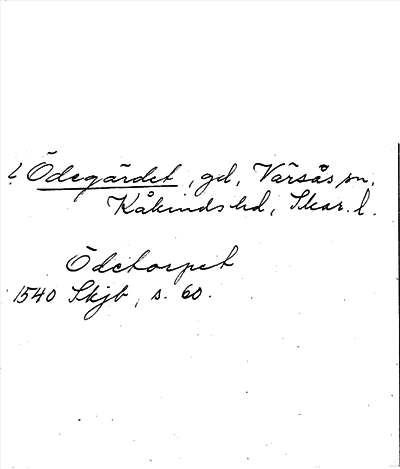 ? Ödegärdet, gd, Varsås sn,
Kåkinds hd, Skar. l.
Ödetorpet
1540 Skjb, s. 60.